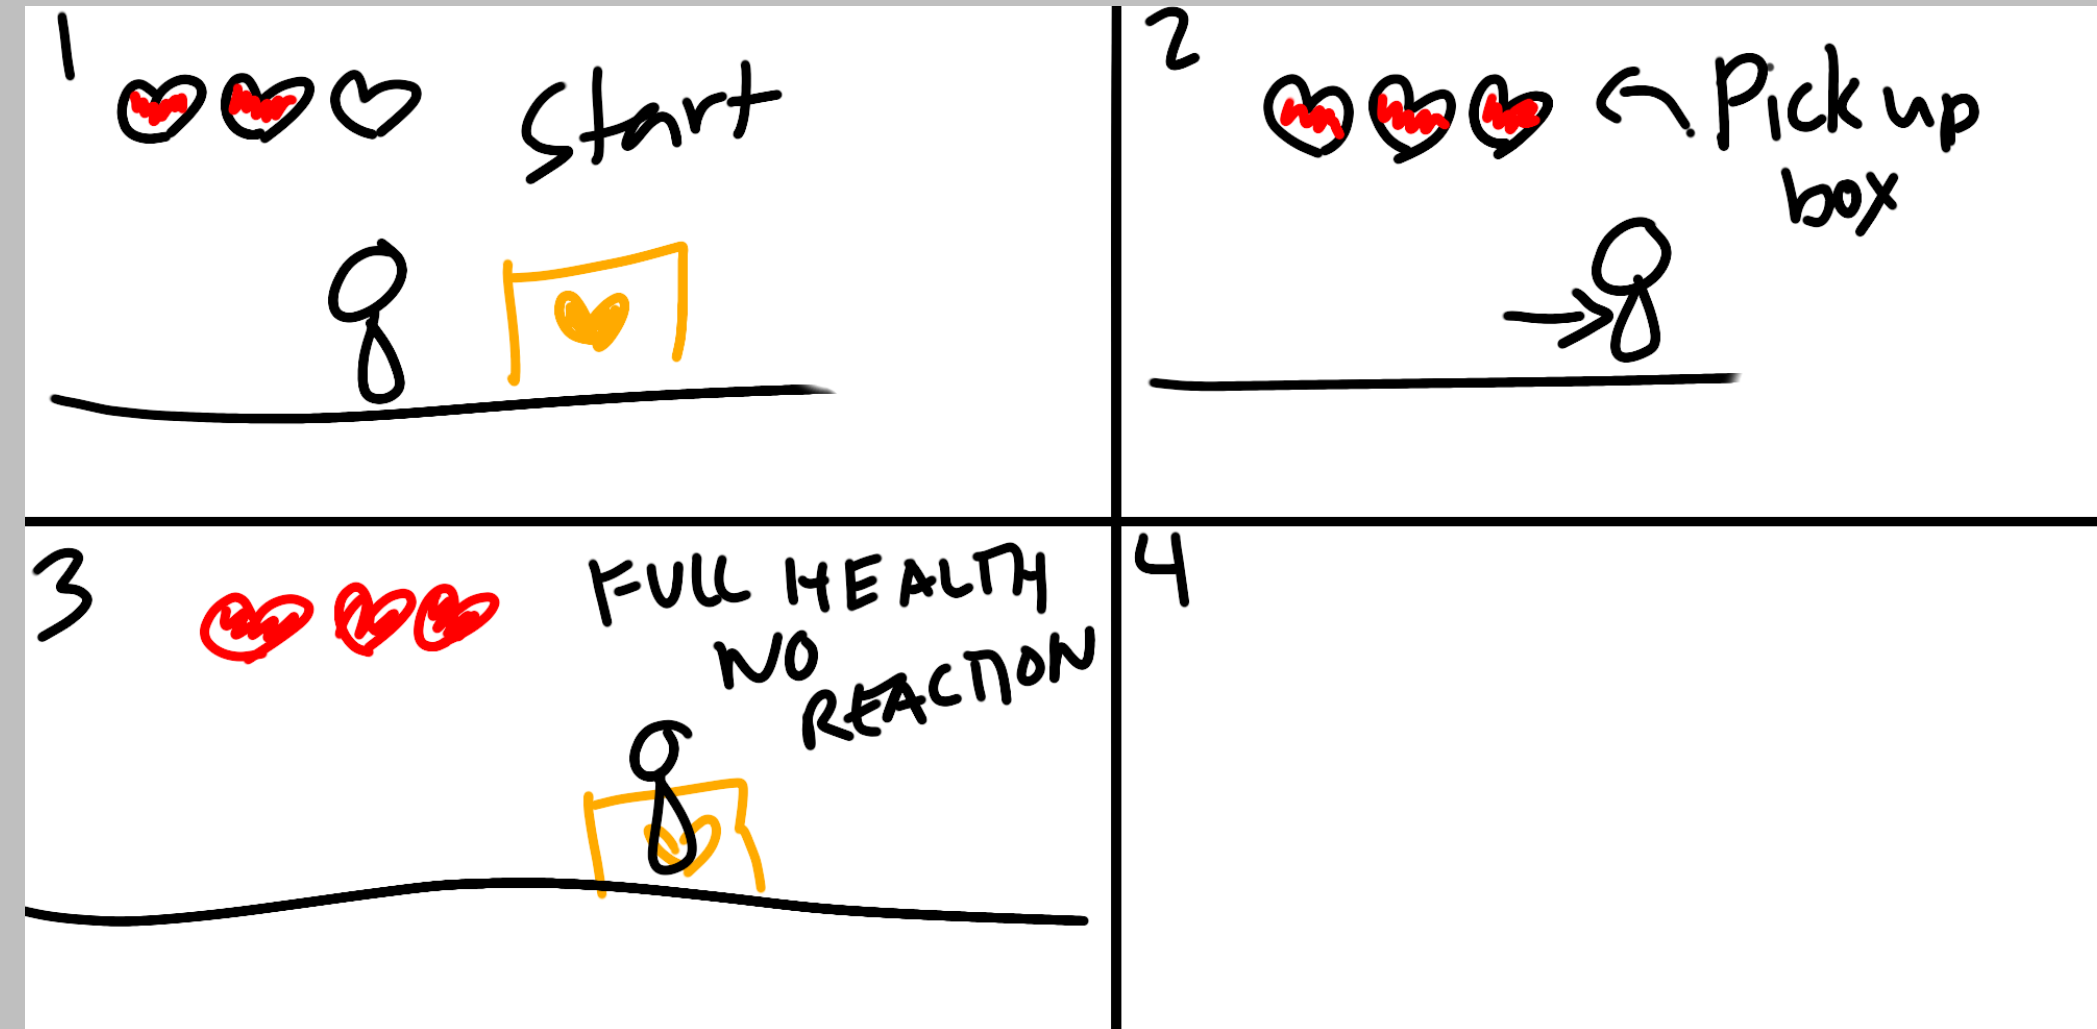 1
Start
2
Pick up
box
3
FULL HEALTH
NO
REACTION
4